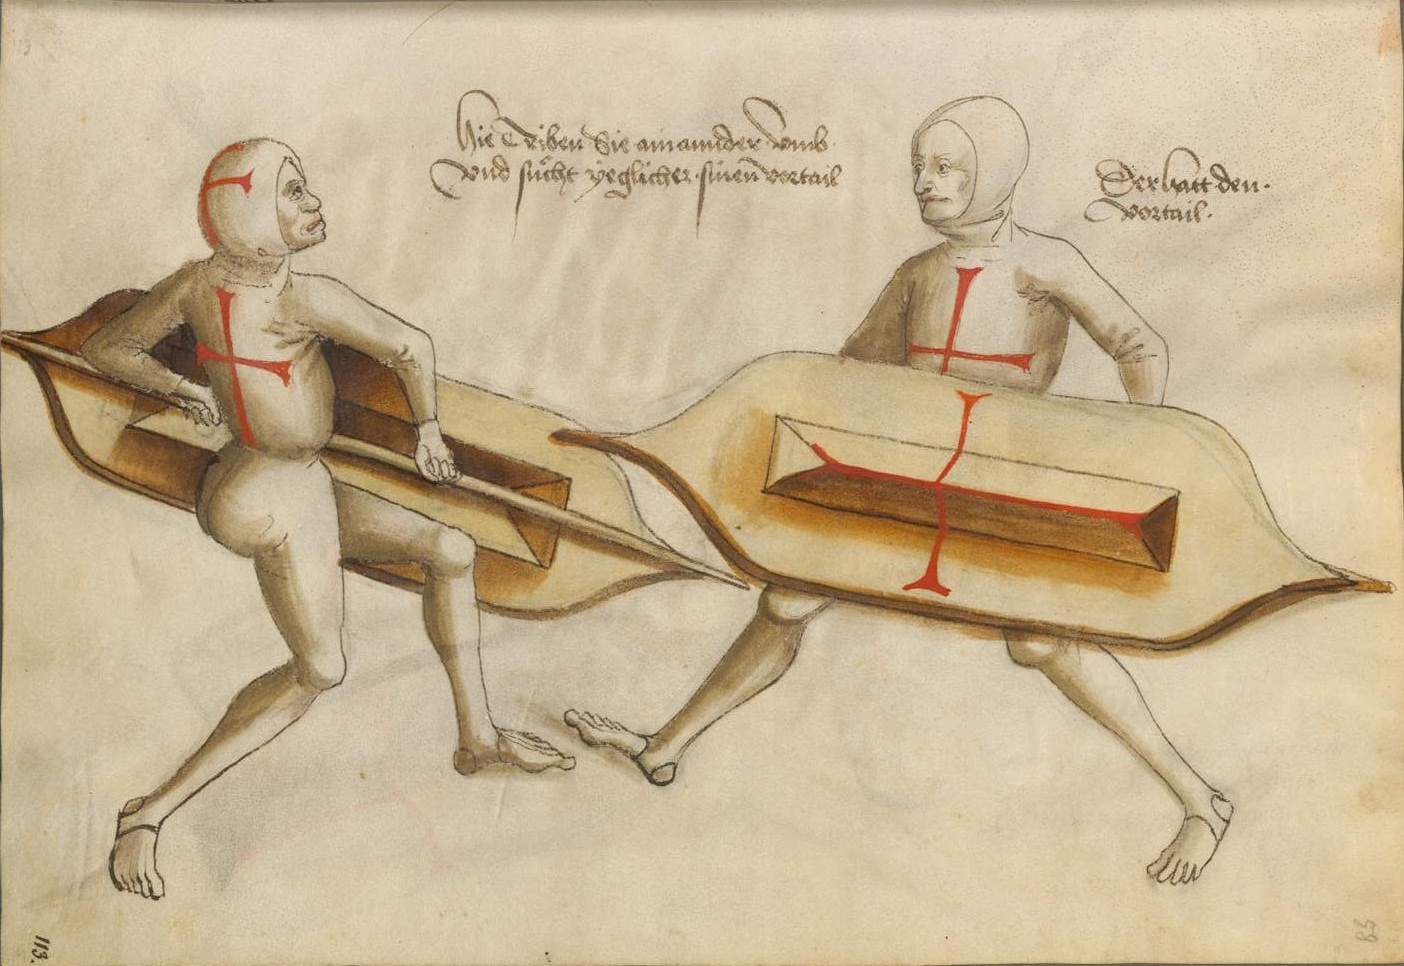 Hie Triben Sie ainannder vmb
Vnd sůcht yeglicher sinen vortail
Der hatt den
vortail
113.